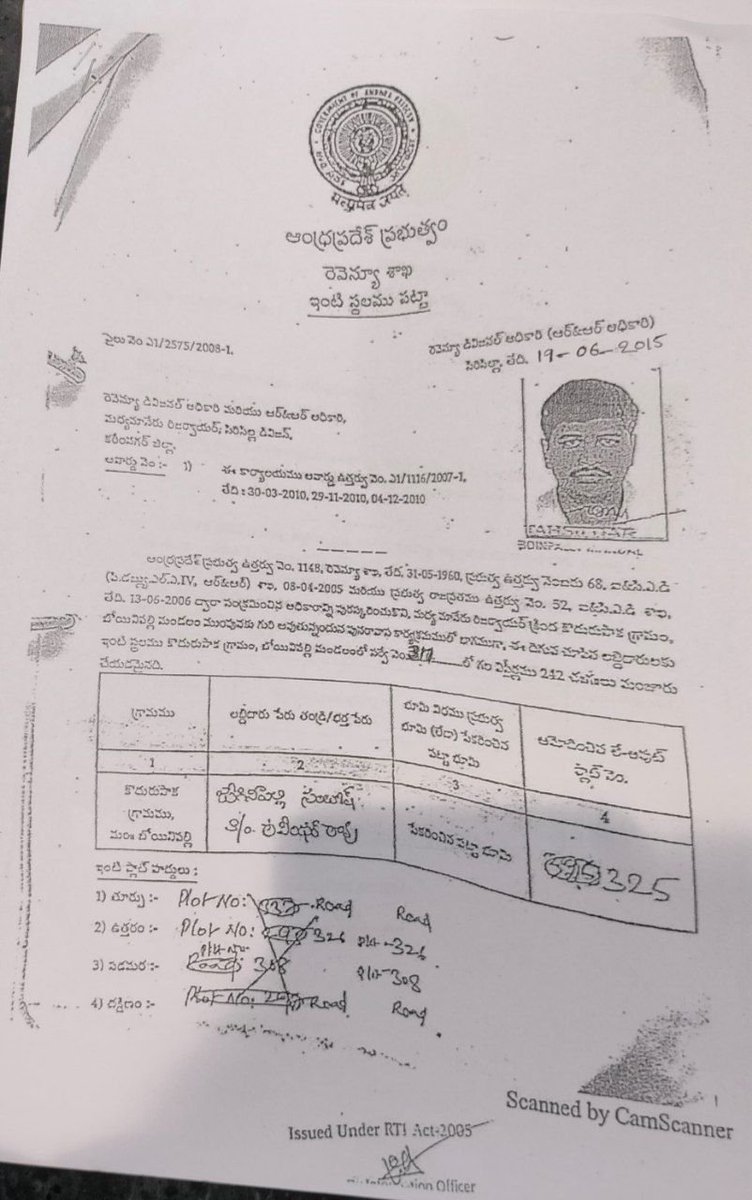 GOVERNMENT OF ANDHRA PRADESH
सत्यमेव जयते
ఆంధ్రప్రదేశ్ ప్రభుత్వం
రెవెన్యూ శాఖ
ఇంటి స్థలము పట్టా
ఫైలు నెం ఎ1/2575/2008-1,
రెవెన్యూ డివిజనల్ అధికారి (ఆర్&ఆర్ అధికారి)
సిరిసిల్లా, తేది. 19-06-2015
రెవెన్యూ డివిజనల్ అధికారి మరియు ఆర్&ఆర్ అధికారి,
మధ్యమానేరు రిజర్వాయర్, సిరిసిల్ల డివిజన్,
కరీంనగర్ జిల్లా.
అవార్డు నెం :- 1) ఈ కార్యాలయము అవార్డు ఉత్తర్వు నెం. ఎ1/1116/2007-1,
తేది : 30-03-2010, 29-11-2010, 04-12-2010
TAHSILDAR
ఆంధ్రప్రదేశ్ ప్రభుత్వ ఉత్తర్వు నెం. 1148, రెవెన్యూ శాఖ, తేది, 31-05-1960, ప్రభుత్వ ఉత్తర్వు నెంబరు 68, ఐ&సి.ఎ.డి
(పి.డబ్ల్యు.ఎల్.ఎ.IV, ఆర్&ఆర్) శాఖ, 08-04-2005 మరియు ప్రభుత్వ ఉత్తర్వు నెం. 52, ఐ&సి.ఎ.డి శాఖ,
తేది. 13-06-2006 ద్వారా సంక్రమించిన అధికారాన్ని పురస్కరించుకొని, మధ్య మానేరు రిజర్వాయర్ క్రింద కొదురుపాక గ్రామం,
బోయినిపల్లి మండలం ముంపునకు గురి అవుతున్నందున పునరావాస కార్యక్రమములో భాగముగా, ఈ దిగువ చూపిన లబ్ధిదారులకు
ఇంటి స్థలము కొదురుపాక గ్రామం, బోయినిపల్లి మండలంలో సర్వే నెం లో గల విస్తీర్ణము 242 చ॥గజాలు మంజూరు
చేయడమైనది.
గ్రామము
లబ్ధిదారు పేరు తండ్రి/భర్త పేరు
భూమి వివరము ప్రభుత్వ భూమి (లేదా) సేకరించిన పట్టా భూమి
ఆమోదించిన లే-అవుట్ ప్లాట్ నెం.
1 2 3 4
కొదురుపాక
గ్రామము,
మం॥ బోయినిపల్లి
సేకరించిన పట్టా భూమి
325
ఇంటి ప్లాట్ హద్దులు :
1) తూర్పు :- Plot No: Road Road
2) ఉత్తరం :- Plot No: 326 Plt-326
3) పడమర :- Plt No: 308 Plt-308
4) దక్షిణం :- Plot No: Road Road
Scanned by CamScanner
Issued Under RTI Act-2005
Information Officer